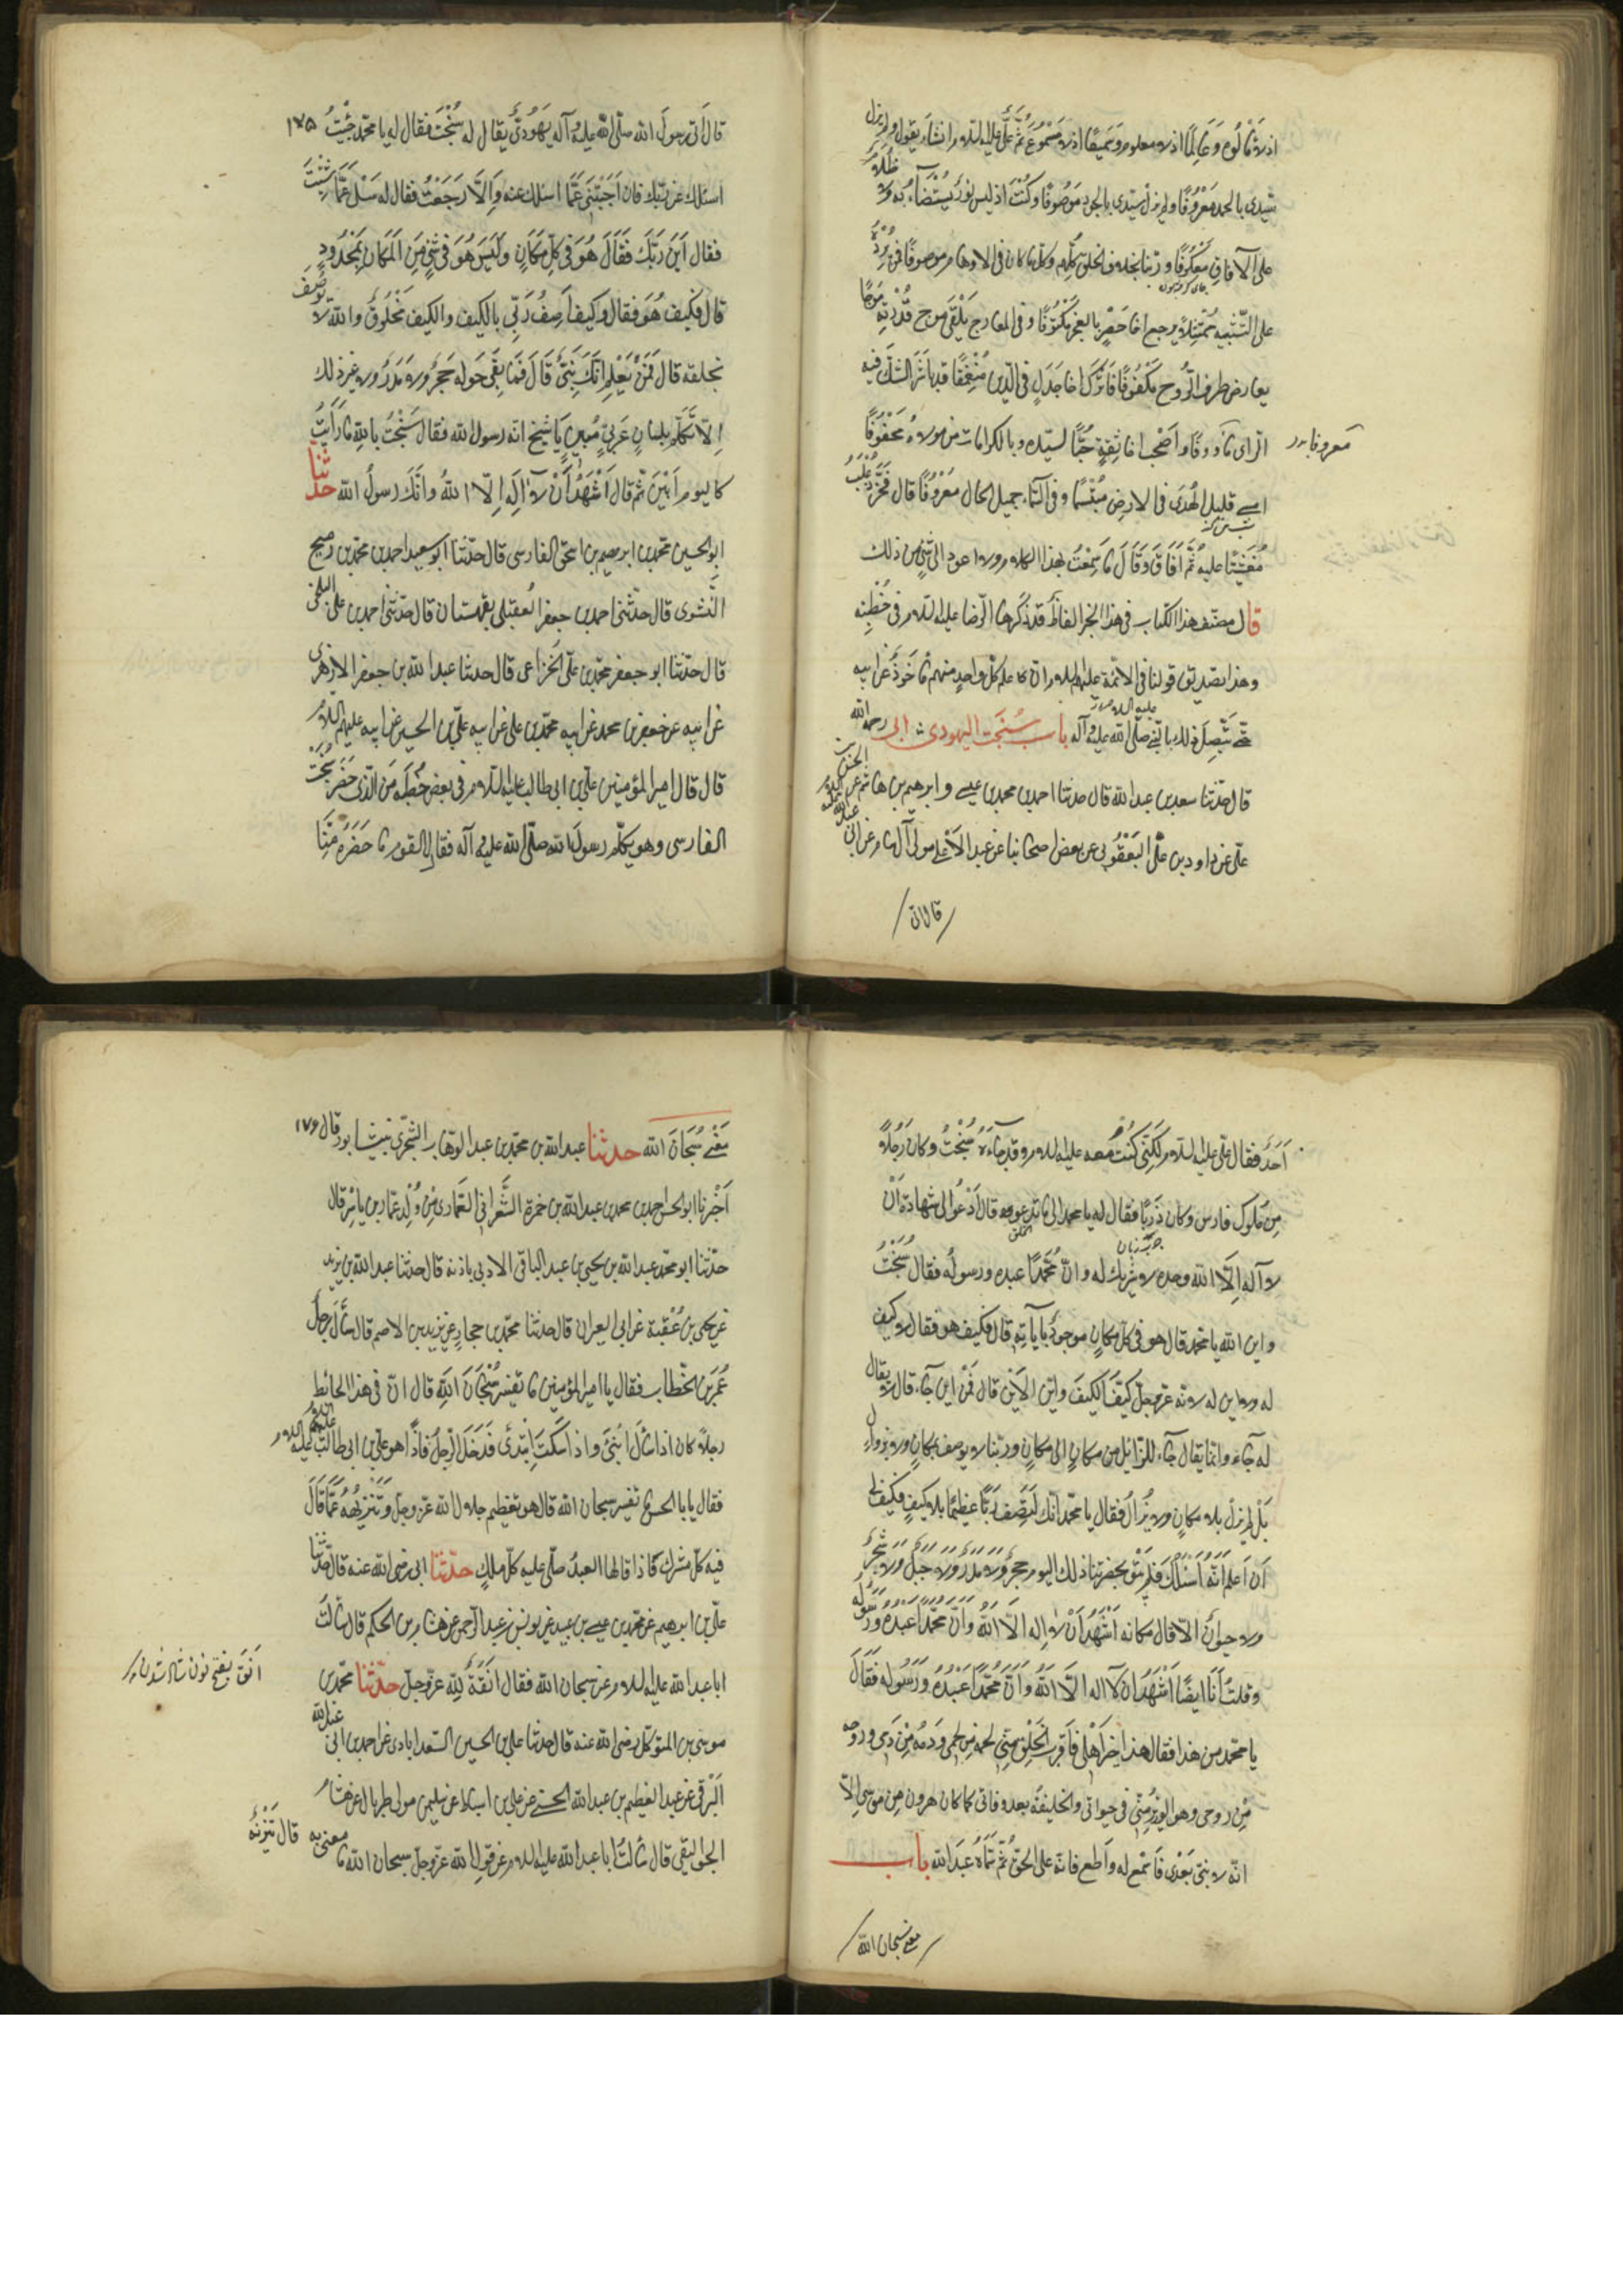 اذ لا مألوه وعالما اذ لا معلوم وسميعا اذ لا مسموع ثم علي عليه السلام وانشاء يقول ولم يزل
سيدي بالحمد معروفا ولم يزل سيدي بالجود موصوفا وكنت اذ ليس نور يستضاء به ولا ظلام
على الآفاق معكوفا وربنا بخلاف الخلق كلهم وكل ما كان في الاوهام موصوفا فمن يرده
على التشبيه ممتثلا يرجع اخا حصر بالعجز مكتوفا وفي المعارج يلقى موج قدرته موجا
يعارض طرف الروح مكفوفا فاترك اخا جدل في الدين منعمقا قد باشر الشك فيه
الراي مأووفا واصحب اخا ثقة حبا لسيده وبالكرامات من مولاه محفوفا
معروفا
امسى دليل الهدى في الارض مبتسما وفي السماء جميل الحال معروفا قال فخر ذعلب
مغشيا عليه ثم افاق وقال ما سمعت بهذا الكلام ولا اعود الى شئ من ذلك
قال مصنف هذا الكتاب في هذا الخبر الفاظ قد ذكرها الرضا عليه السلام في خطبته
وهذا تصديق قولنا في الائمة عليهم السلام ان علم كل واحد منهم مأخوذ عن ابيه
حتى يتصل ذلك بالنبي صلى الله عليه وآله باب سبخت اليهودي ابي رحمه الله
قال حدثنا سعد بن عبد الله قال حدثنا احمد بن محمد بن عيسى وابرهيم بن هاشم عن الحسن بن
علي عن داود بن علي اليعقوبي عن بعض اصحابنا عن عبد الاعلى مولى آل سام عن ابي عبد الله عليه السلام
قال اتى
قال اتى رسول الله صلى الله عليه وآله يهودي يقال له سبخت فقال له يا محمد جئت ١٧٥
اسئلك عن ربك فان اجبتني عما اسئلك عنه والا رجعت فقال له سل عما شئت
فقال اين ربك فقال هو في كل مكان وليس هو في شئ من المكان بمحدود
قال فكيف هو فقال وكيف اصف ربي بالكيف والكيف مخلوق والله لا يوصف
بخلقه قال فمن يعلم انك نبي قال فما بقي حوله حجر ولا مدر ولا غير ذلك
الا تكلم بلسان عربي مبين يا شيخ انه رسول الله فقال سبخت بالله ما رأيت
كاليوم ابين ثم قال اشهد ان لا اله الا الله وانك رسول الله حدثنا
ابو الحسين محمد بن ابرهيم بن اسحق الفارسي قال حدثنا ابو سعيد احمد بن محمد بن رميح
النسوي قال حدثني احمد بن جعفر العقيلي بقهستان قال حدثني احمد بن علي البلخي
قال حدثنا ابو جعفر محمد بن علي الخزاعي قال حدثنا عبد الله بن جعفر الازهري
عن ابيه عن جعفر بن محمد عن ابيه محمد بن علي عن ابيه علي بن الحسين عن ابيه عليهم السلام
قال قال امير المؤمنين علي بن ابي طالب عليه السلام في بعض خطبه من الذي حضر سبخت
الفارسي وهو يكلم رسول الله صلى الله عليه وآله فقال القوم ما حضره منا
احد فقال علي عليه السلام لكني كنت معه عليه السلام وقد جاءه سبخت وكان رجلا
من ملوك فارس وكان ذربا فقال له يا محمد الى ما تدعو قال ادعو الى شهادة ان
لا اله الا الله وحده لا شريك له وان محمدا عبده ورسوله فقال سبخت
واين الله يا محمد قال هو في كل مكان موجود بآياته قال فكيف هو فقال لا كيف
له ولا اين له لانه عز وجل كيف الكيف واين الاين قال فمن اين جاء قال لا يقال
له جاء وانما يقال جاء للزائل من مكان الى مكان وربنا لا يوصف بمكان ولا بزوال
بل لم يزل بلا مكان ولا يزال فقال يا محمد انك لتصف ربا عظيما بلا كيف فكيف لي
ان اعلم انه ارسلك فلم يبق بحضرتنا ذلك اليوم حجر ولا مدر ولا جبل ولا شجر
ولا حيوان الا قال مكانه اشهد ان لا اله الا الله وان محمدا عبده ورسوله
وقلت انا ايضا اشهد ان لا اله الا الله وان محمدا عبده ورسوله فقال
يا محمد من هذا فقال هذا خير اهلي واقرب الخلق مني لحمه من لحمي ودمه من دمي وروحه
من روحي وهو الوزير مني في حيواتي والخليفة بعد وفاتي كما كان هرون من موسى الا
انه لا نبي بعدي فاسمع له واطع فانه على الحق ثم سماه عبد الله باب
معنى سبحان الله
معنى سبحان الله حدثنا عبد الله بن محمد بن عبد الوهاب الشجري بنيشابور قال ١٧٦
اخبرنا ابو الحسن احمد بن محمد بن عبد الله بن حمزة الشعراني العماري من ولد عمار بن ياسر قال
حدثنا ابو محمد عبد الله بن يحيى بن عبد الباقي الاذني باذنه قال حدثنا عبد الله بن يزيد
عن يحيى بن عقبة عن ابي العيزار قال حدثنا محمد بن حجار عن يزيد بن الاصم قال سأل رجل
عمر بن الخطاب فقال يا امير المؤمنين ما تفسير سبحان الله قال ان في هذا الحائط
رجلا كان اذا سأل انبئ واذا سكت ابتدئ فدخل الرجل فاذا هو علي بن ابي طالب عليه السلام
فقال يا ابا الحسن ما تفسير سبحان الله قال هو تعظيم جلال الله عز وجل وتنزيهه عما قال
فيه كل مشرك فاذا قالها العبد صلى عليه كل ملك حدثنا ابي رضي الله عنه قال حدثنا
علي بن ابرهيم عن محمد بن عيسى بن عبيد عن يونس بن عبد الرحمن عن هشام بن الحكم قال سألت
ابا عبد الله عليه السلام عن سبحان الله فقال انفة لله عز وجل حدثنا محمد بن
موسى بن المتوكل رضي الله عنه قال حدثنا علي بن الحسين السعدابادي عن احمد بن ابي عبد الله
البرقي عن عبد العظيم بن عبد الله الحسني عن علي بن اسباط عن سليمن مولى طربال عن هشام
الجواليقي قال سألت ابا عبد الله عليه السلام عن قول الله عز وجل سبحان الله ما معنى به قال تنزيه